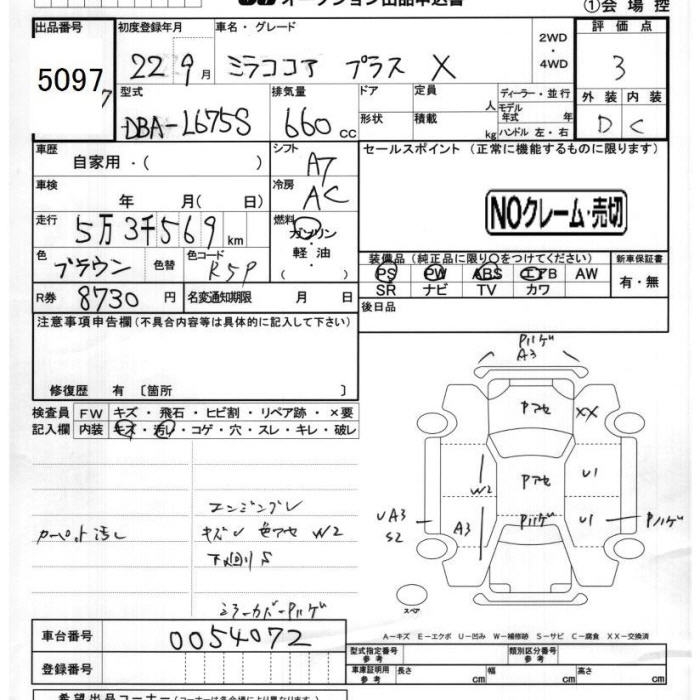 オークション出品申込書
①会場控
出品番号 初度登録年月 車名・グレード 評価点
50977 22 9月 ミラココア プラス X 2WD・4WD 3
型式 排気量 ドア 定員 人 ディーラー・並行 外装 内装
DBA-L675S 660cc 形状 積載 kg モデル年式 年 ハンドル 左・右 D C
車歴 シフト セールスポイント(正常に機能するものに限ります)
自家用・( ) A7
車検 冷房
年 月( 日) AC
NOクレーム・売切
走行 燃料
5万3千569km ガソリン・軽油・( )
色 色替 色コード
ブラウン R59
装備品(純正品に限り○をつけてください) 新車保証書
PS PW ABS エアB AW 有・無
SR ナビ TV カワ
R券 8730円 名変通知期限 月 日 後日品
注意事項申告欄(不具合内容等は具体的に記入して下さい)
修復歴 有 〔箇所 〕
検査員 FW キズ・飛石・ヒビ割・リペア跡・×要
記入欄 内装 キズ・汚レ・コゲ・穴・スレ・キレ・破レ
Pハゲ
A3
Pアセ XX
W2 Pアセ U1
UA3 A3 Pハゲ U1 Pハゲ
S2
エンジンブレ
カーペット汚レ キズU 色アセ W2
下回りS
ミラーカバーPハゲ
スペア
車台番号 0054072
A－キズ E－エクボ U－凹み W－補修跡 S－サビ C－腐食 XX－交換済
登録番号
型式指定番号 参考 類別区分番号 参考
車庫証明用 参考 長さ cm 幅 cm 高さ cm
希望出品コーナー(コーナーは各会場により異なります)